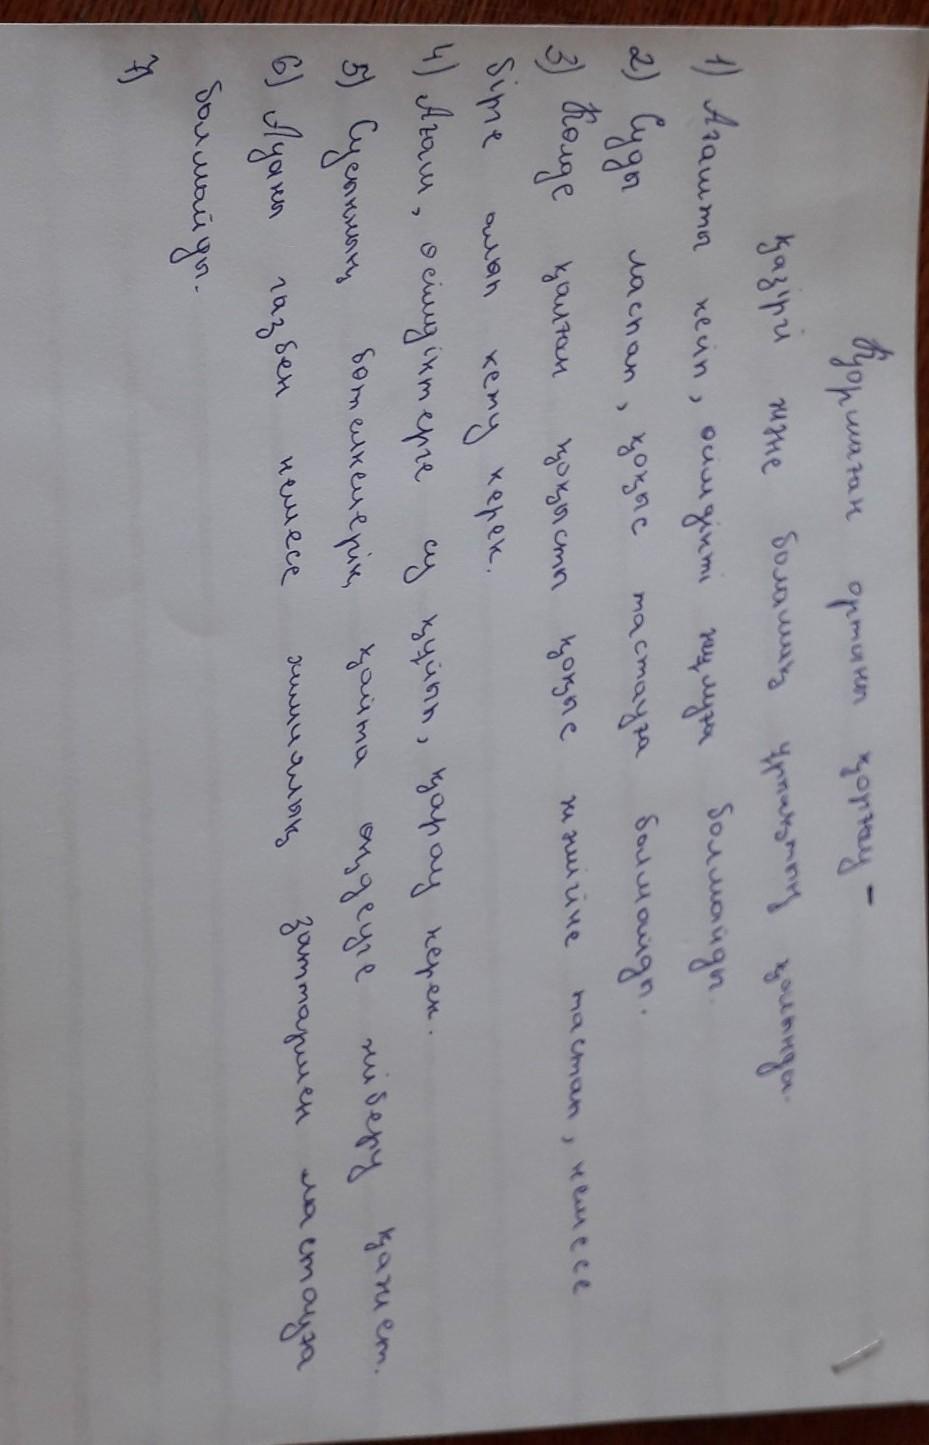 Қоршаған ортаны қорғау -
қазіргі және болашақ ұрпақтың қамында.
1) Ағашты кейіп, өсімдікті жұлуға болмайды.
2) Суды ласпап, қоқыс тастауға болмайды.
3) Көлде қалған қоқысты қоқыс жәшігіне тастап, немесе
бірге алып кету керек.
4) Ағаш, өсімдіктерге су құйып, қарау керек.
5) Сусынның бөтелкелерің қайта өңдеуге жіберу қажет.
6) Ауаны газбен немесе химиялық заттармен ластауға
болмайды.
7)